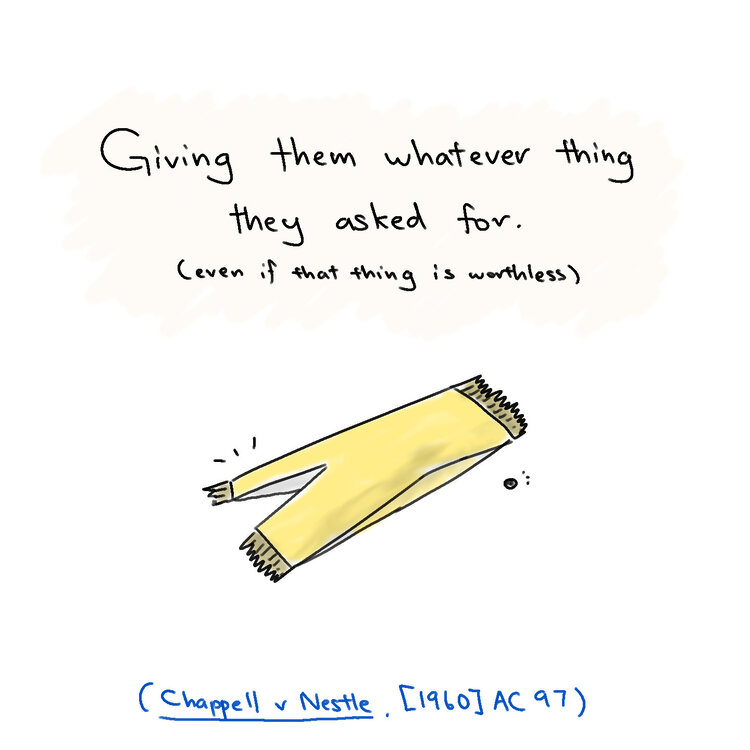 Giving them whatever thing
they asked for.
(even if that thing is worthless)
(Chappell v Nestle, [1960] AC 97)